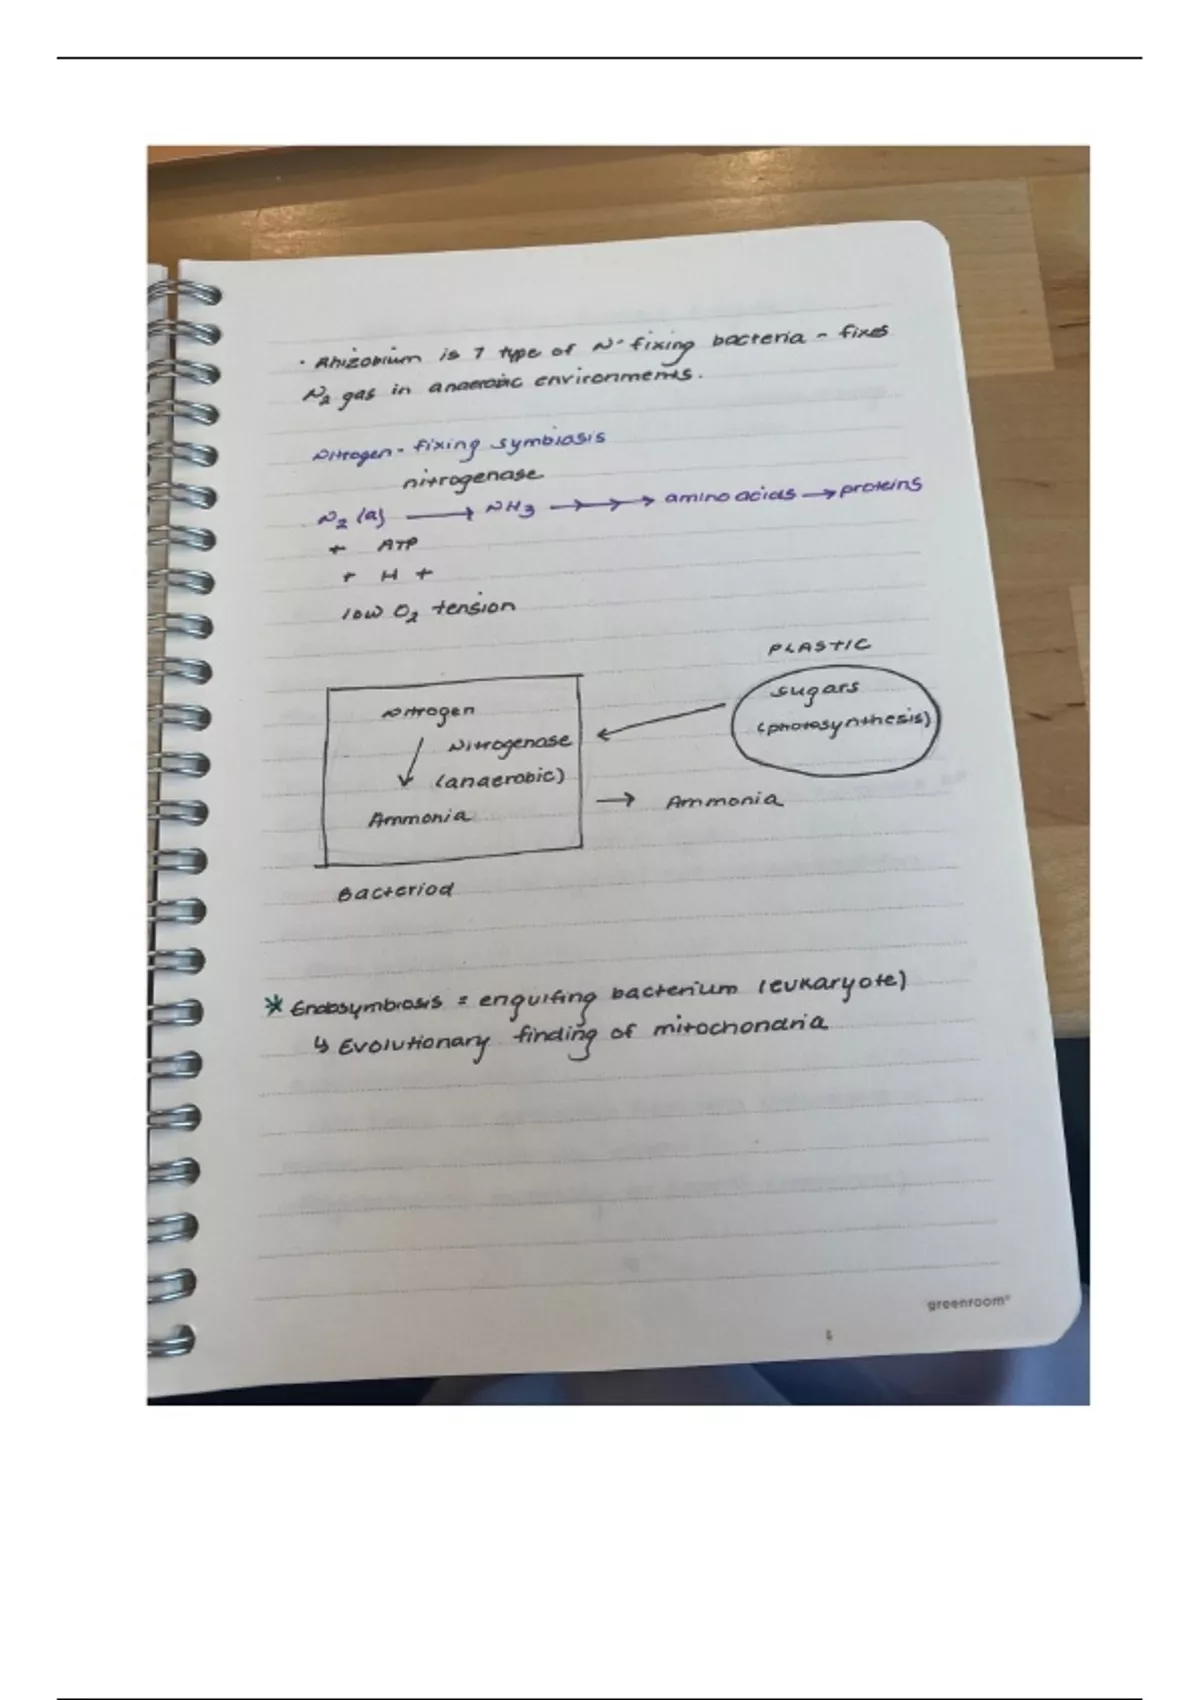 · Rhizobium is 1 type of N-fixing bacteria - fixes
N₂ gas in anaerobic environments.
Nitrogen-fixing symbiosis
nitrogenase
N₂ (a) → NH₃ →→→ amino acids → proteins
+ ATP
+ H +
low O₂ tension
PLASTIC
Nitrogen
sugars
Nitrogenase
(photosynthesis)
(anaerobic)
Ammonia
→ Ammonia
Bacteriod
* Endosymbiosis = engulfing bacterium (eukaryote)
↳ Evolutionary finding of mitochondria
greenroom®